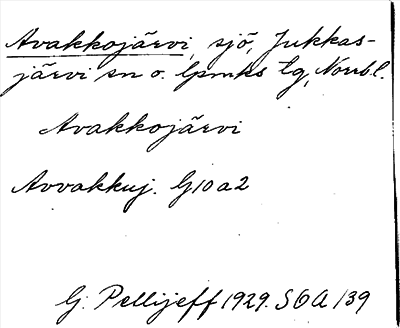 Avakkojärvi, sjö, Jukkas-
järvi sn o. lpmks tg, Norrb l.
Avakkojärvi
Avvakkuj. G10a2
G. Pellijeff 1929. SOA 139